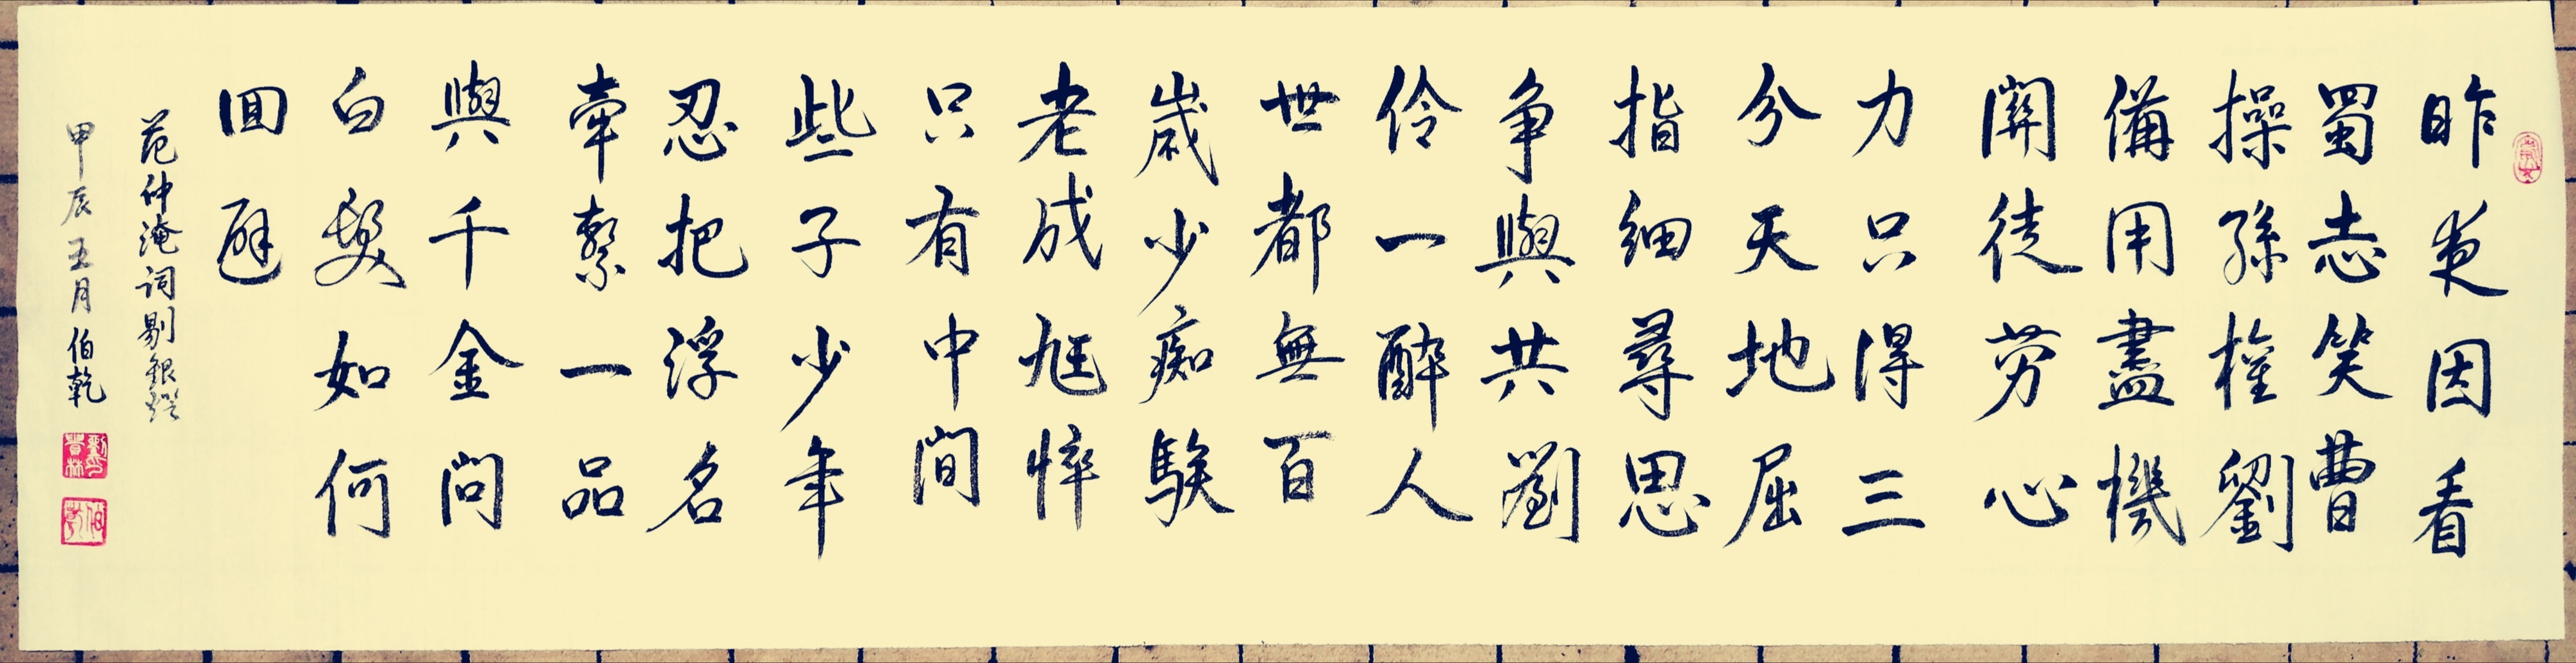 昨夜因看
蜀志笑曹
操孫權劉
備用盡機
關徒劳心
力只得三
分天地屈
指細尋思
争與共劉
伶一醉人
世都無百
歲少痴騃
老成尫悴
只有中間
些子少年
忍把浮名
牽繫一品
與千金問
白髮如何
囬避
范仲淹詞剔銀燈
甲辰五月伯乾
伯乾